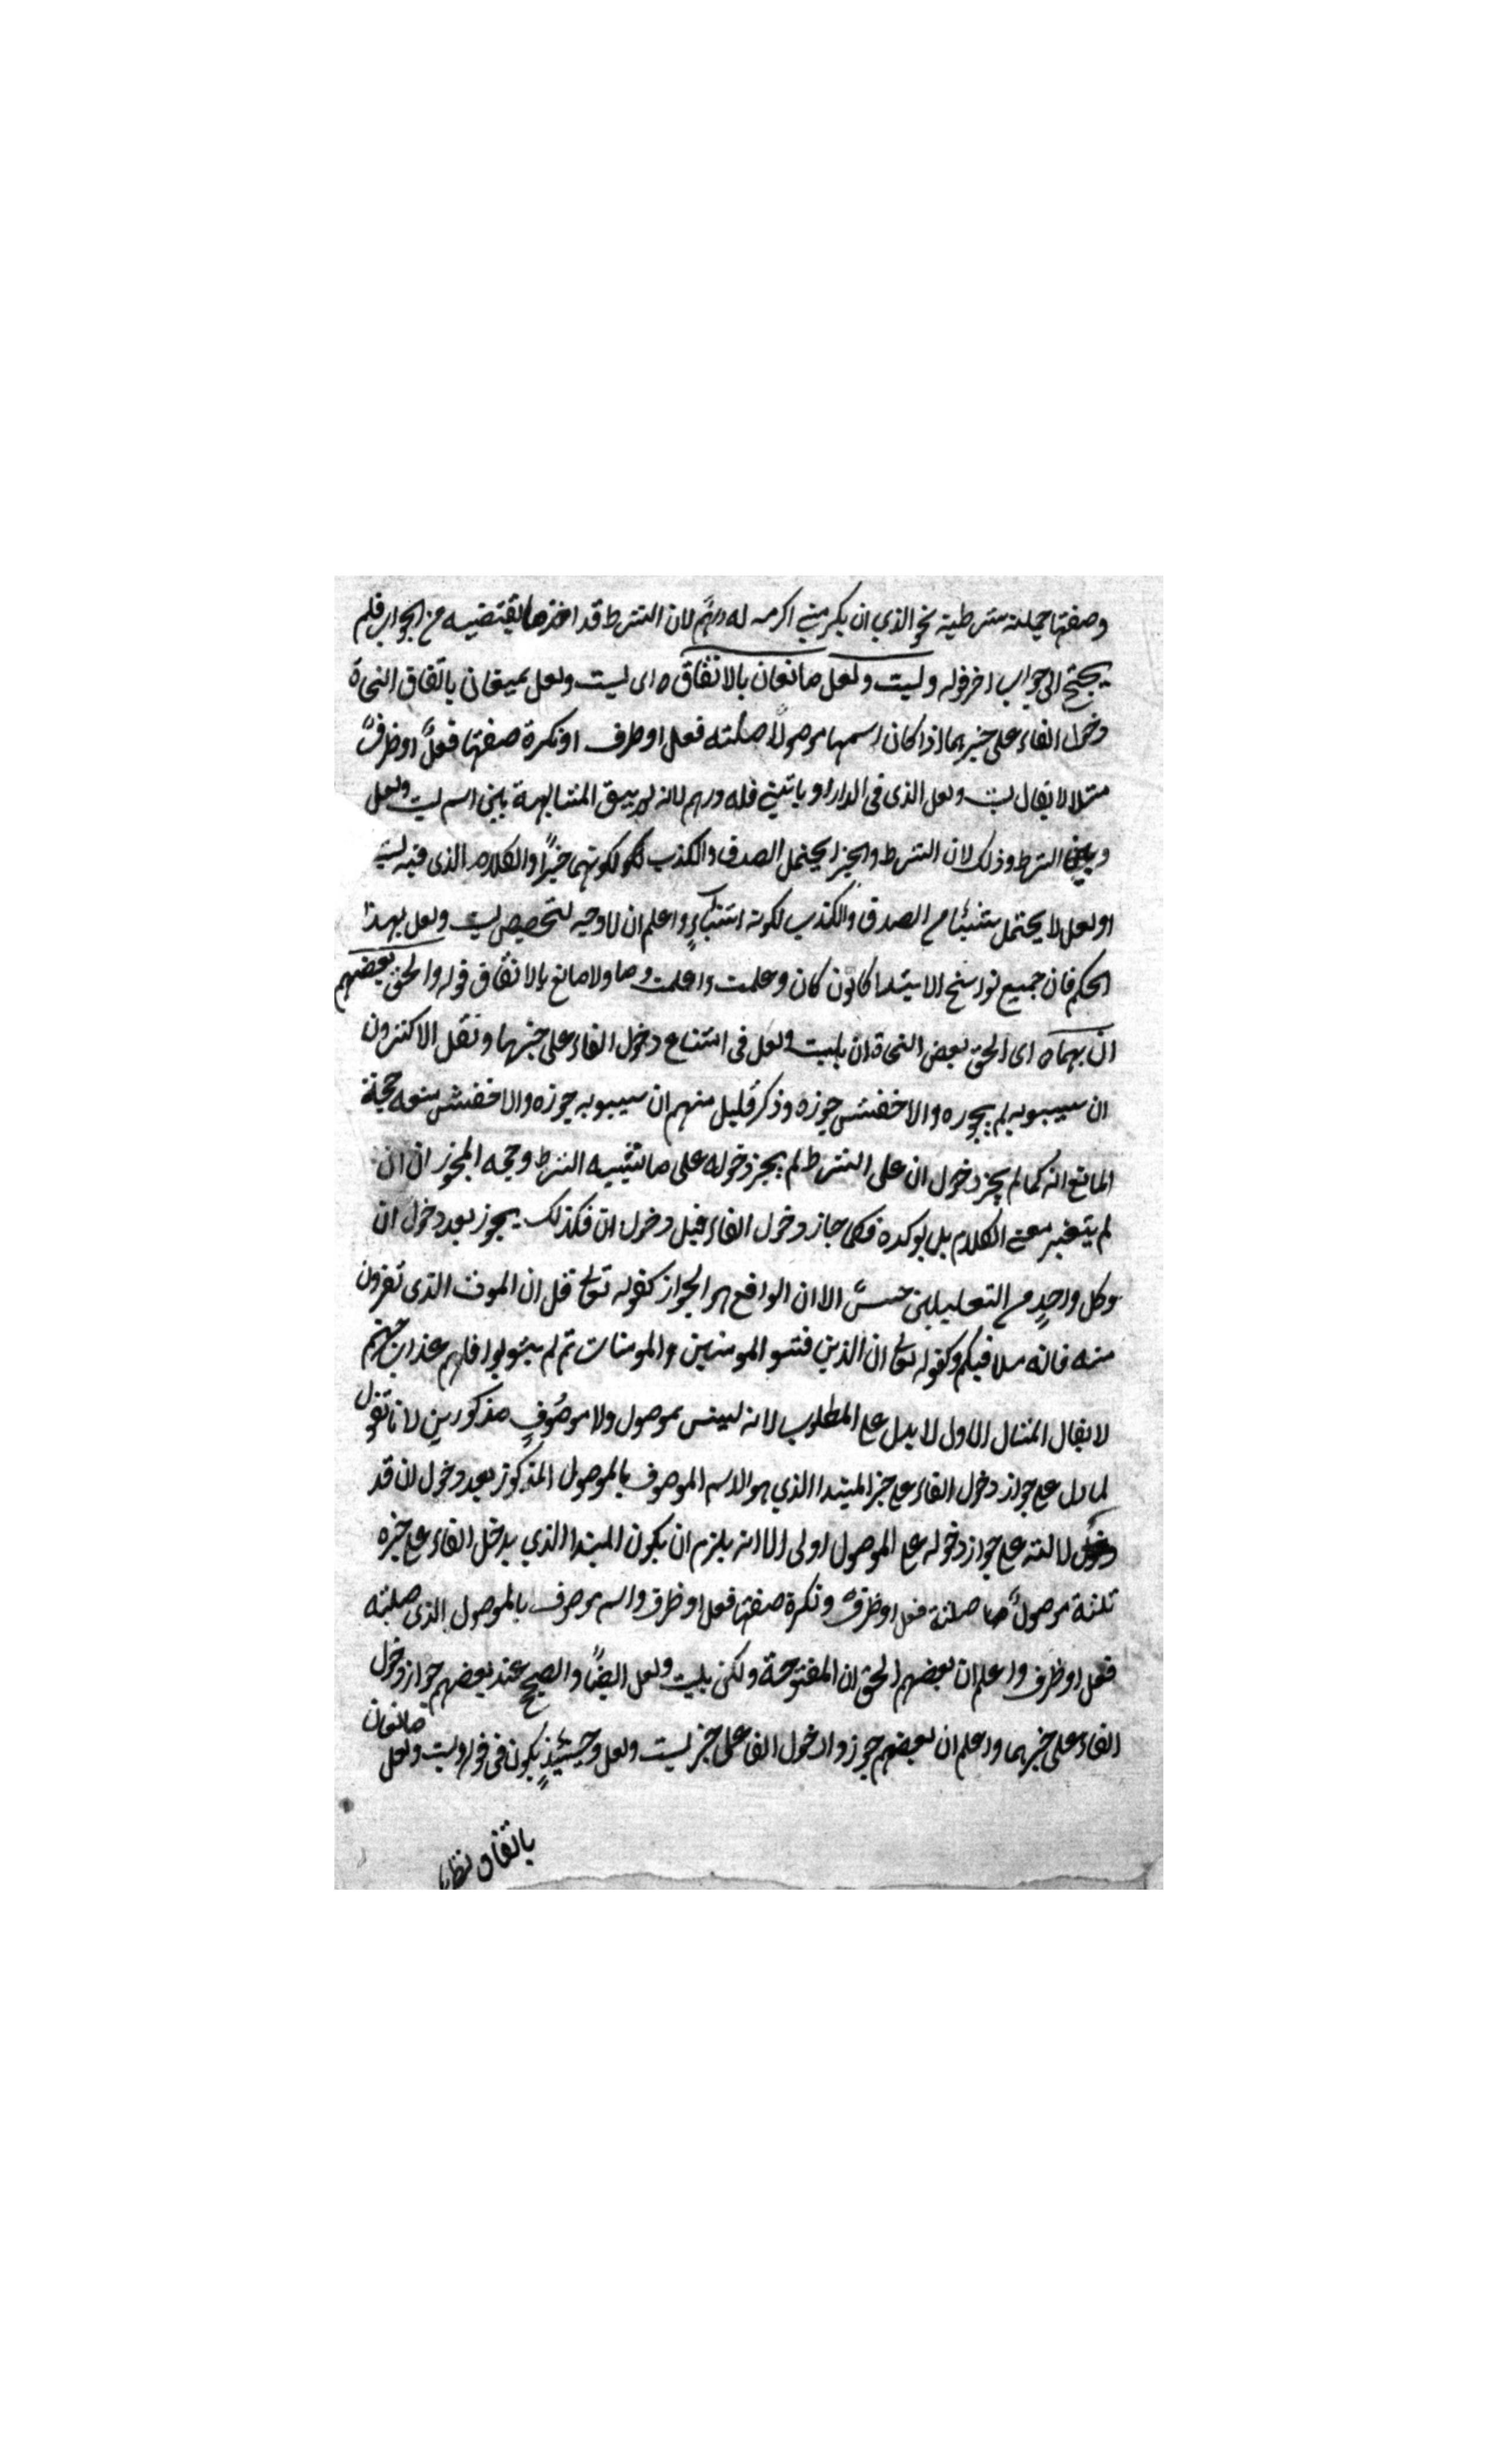 وصفتها جملة شرطية نحو الذي ان يكرمني اكرمه له درهم لان الشرط قد اخذ ما يقتضيه من الجواب فلم
يحتج الى جواب اخر قوله وليت ولعل مانعان بالاتفاق ه اى ليت ولعل يمنعان باتفاق النحاة
دخول الفاء على خبرهما اذا كان اسمها موصولًا صلته فعل او ظرف او نكرة صفتها فعلٌ او ظرفٌ
مثلا لا يقال ليت ولعل الذى فى الدار او ياتيني فله درهم لانه لم يبق المشابهة بين اسم ليت ولعل
وبين الشرط وذلك لان الشرط والجزا يحتمل الصدق والكذب لكونهما خبرًا والكلام الذى فيه ليت
او لعل لا يحتمل شيئا من الصدق والكذب لكونه انشاءٍ واعلم ان لا وجه لتخصيص ليت ولعل بهذا
الحكم فان جميع نواسخ الابتدا كانون كان وعلمت واعلمت وما ولا مانع بالاتفاق قوله والحق بعضهم
انّ بهما ه اى الحق بعض النحاة ان بليت ولعل فى امتناع دخول الفاء على خبرها ونقل الاكثرون
ان سيبويه لم يجوزه والاخفش جوزه وذكر قليل منهم ان سيبويه جوزه والاخفش منعه حجة
المانع انه كما لم يجز دخول ان على الشرط لم يجز دخوله على ما يشبه الشرط وحجه المجوز ان ان
لم يتغير معنى الكلام بل يوكده فكما جاز دخول الفاء قبل دخول انّ فكذلك يجوز بعد دخول ان
وكل واحدٍ من التعليلين حسنٌ الا ان الواقع هو الجواز كقوله تعالى قل ان الموت الذى تفرون
منه فانه ملاقيكم وكقوله تعالى ان الذين فتنوا المومنين والمومنات ثم لم يتوبوا فلهم عذاب جهنم
لا يقال المثال الاول لا يدل على المطلوب لانه ليس بموصول ولا موصوفٍ مذكورين لانا نقول
لما دل على جواز دخول الفاء على خبر المبتدا الذي هو الاسم الموصوف بالموصول المذكور بعد دخول ان قد
دلالته على جواز دخوله على الموصول اولى الا انه يلزم ان يكون المبتدا الذي يدخل الفاء على خبره
ثلثة موصولٌ صلته فعل او ظرفٌ ونكرة صفتها فعل او ظرف واسم موصوف بالموصول الذى صلته
فعل او ظرف واعلم ان بعضهم الحق ان المفتوحة ولكن بليت ولعل ايضًا والصحيح عند بعضهم جواز دخول
الفاء على خبرهما واعلم ان بعضهم جوزوا دخول الفا على خبر ليت ولعل وحينئذٍ يكون فى قوله وليت ولعل
مانعان
باتفاق نظر